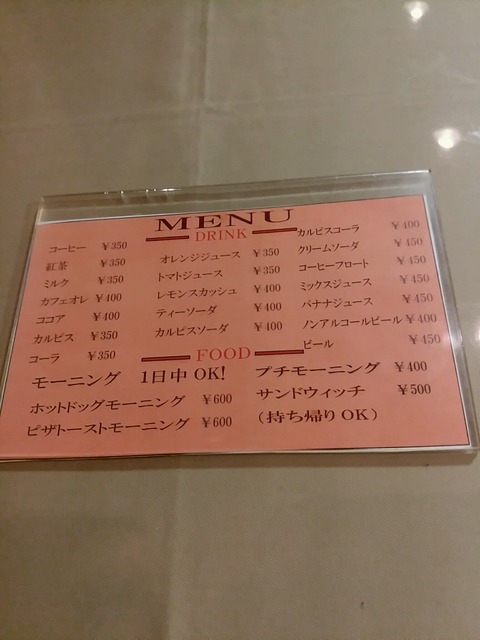 MENU
DRINK
コーヒー ￥350
紅茶 ￥350
ミルク ￥350
カフェオレ ￥400
ココア ￥400
カルピス ￥350
コーラ ￥350
オレンジジュース ￥350
トマトジュース ￥350
レモンスカッシュ ￥400
ティーソーダ ￥400
カルピスソーダ ￥400
カルピスコーラ ￥400
クリームソーダ ￥450
コーヒーフロート ￥450
ミックスジュース ￥450
バナナジュース ￥450
ノンアルコールビール ￥400
ビール ￥450
FOOD
モーニング 1日中OK!
ホットドッグモーニング ￥600
ピザトーストモーニング ￥600
プチモーニング ￥400
サンドウィッチ ￥500
(持ち帰りOK)